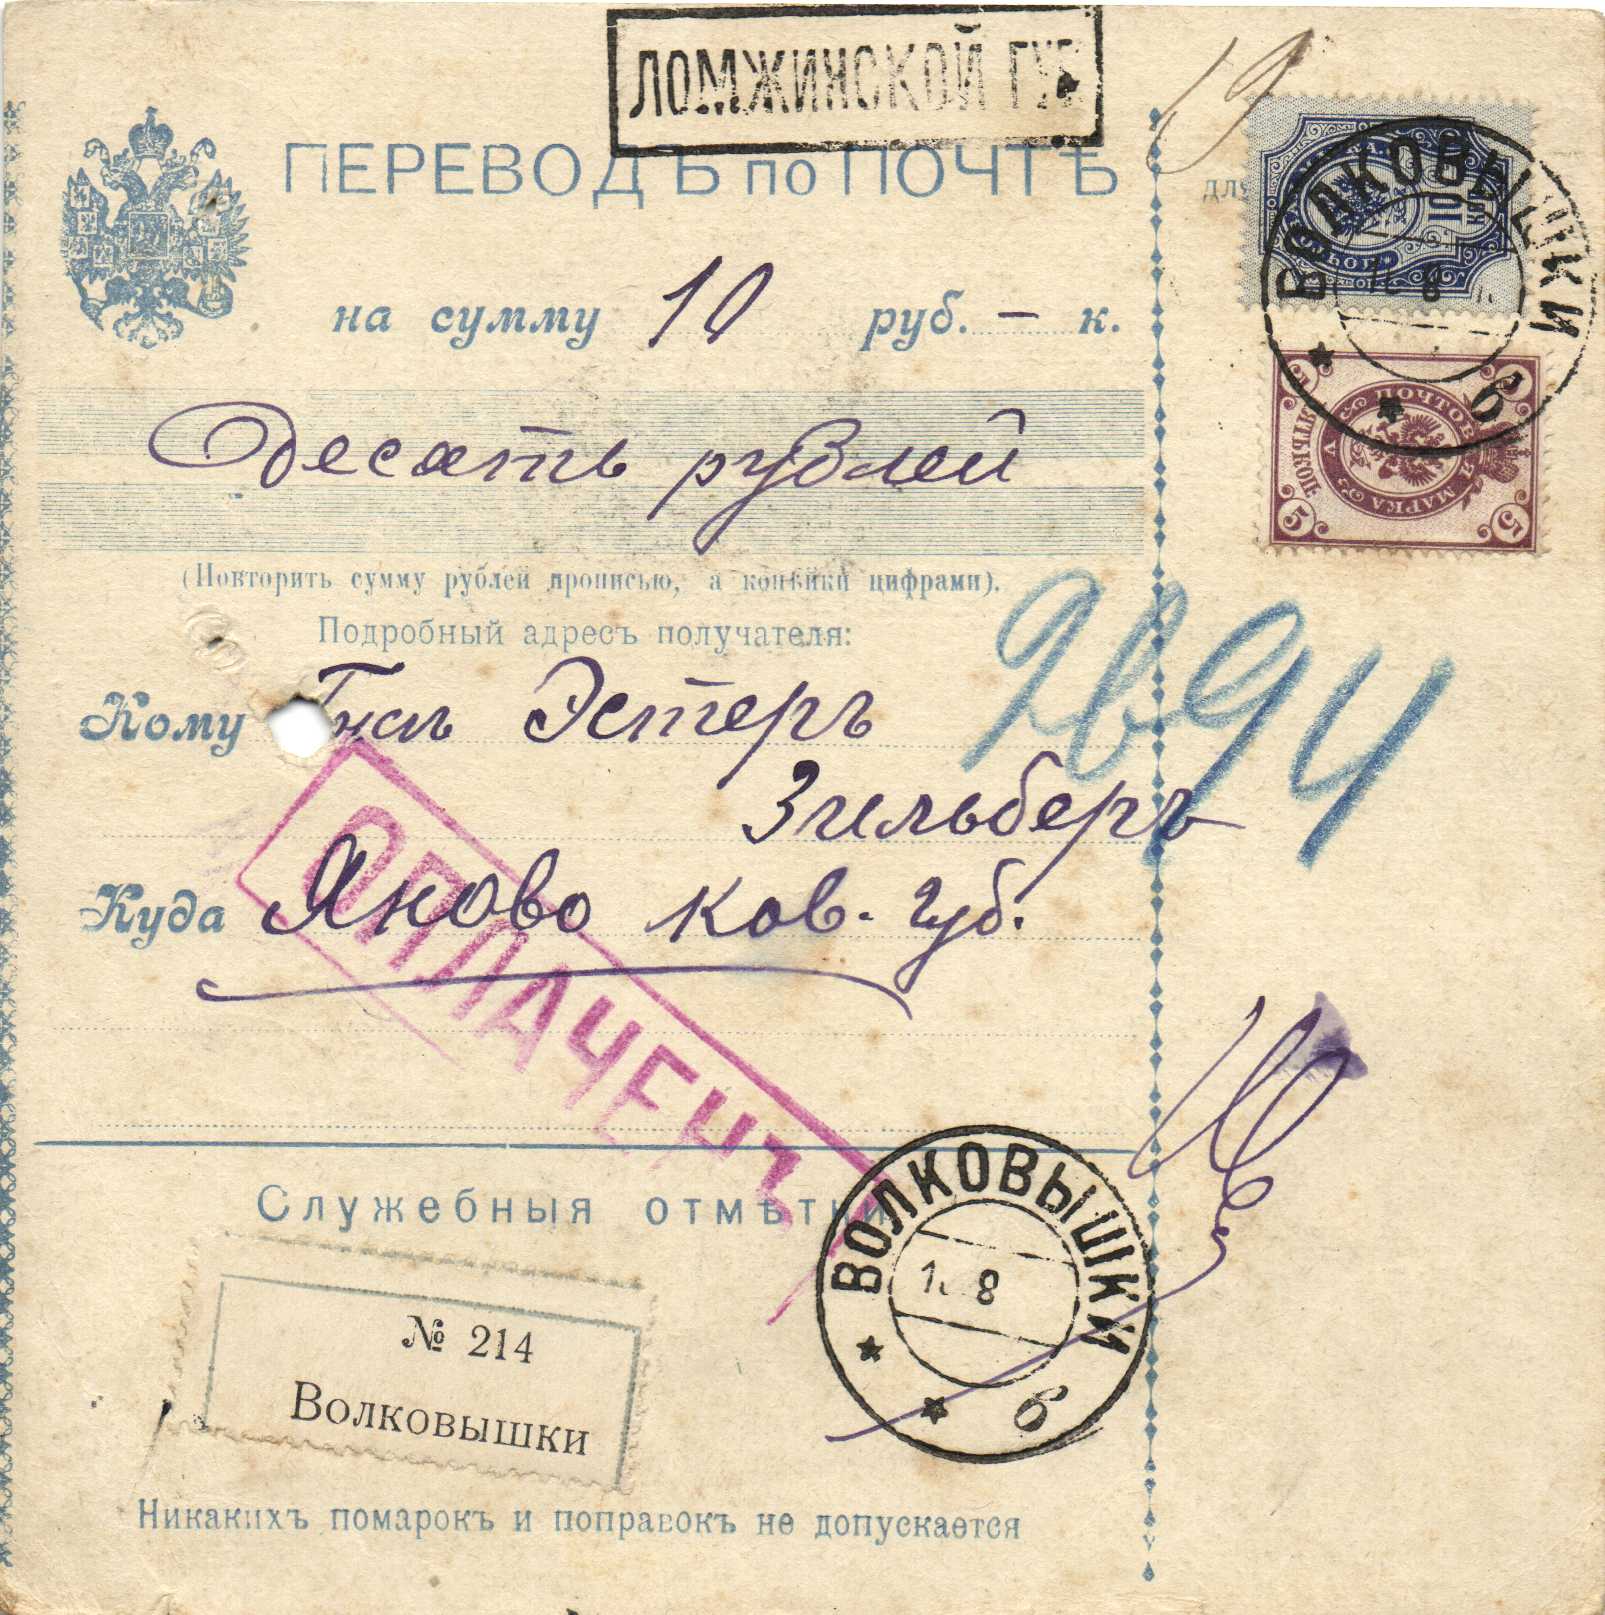 ЛОМЖИНСКОЙ ГУБ
19
ПЕРЕВОДЪ по ПОЧТѢ
для
10 КОП
на сумму 10 руб. — к.
ВОЛКОВЫШКИ
8
6
Десять рублей
ПОЧТОВАЯ МАРКА
ПЯТЬ КОП
5 5
(Повторить сумму рублей прописью, а копѣйки цифрами).
Подробный адресъ получателя:
2694
Кому Эстеръ
Зильберъ
Куда Яново ков. губ.
ОПЛАЧЕНЪ
Служебныя отмѣтки
ВОЛКОВЫШКИ
8
6
№ 214
Волковышки
Никакихъ помарокъ и поправокъ не допускается